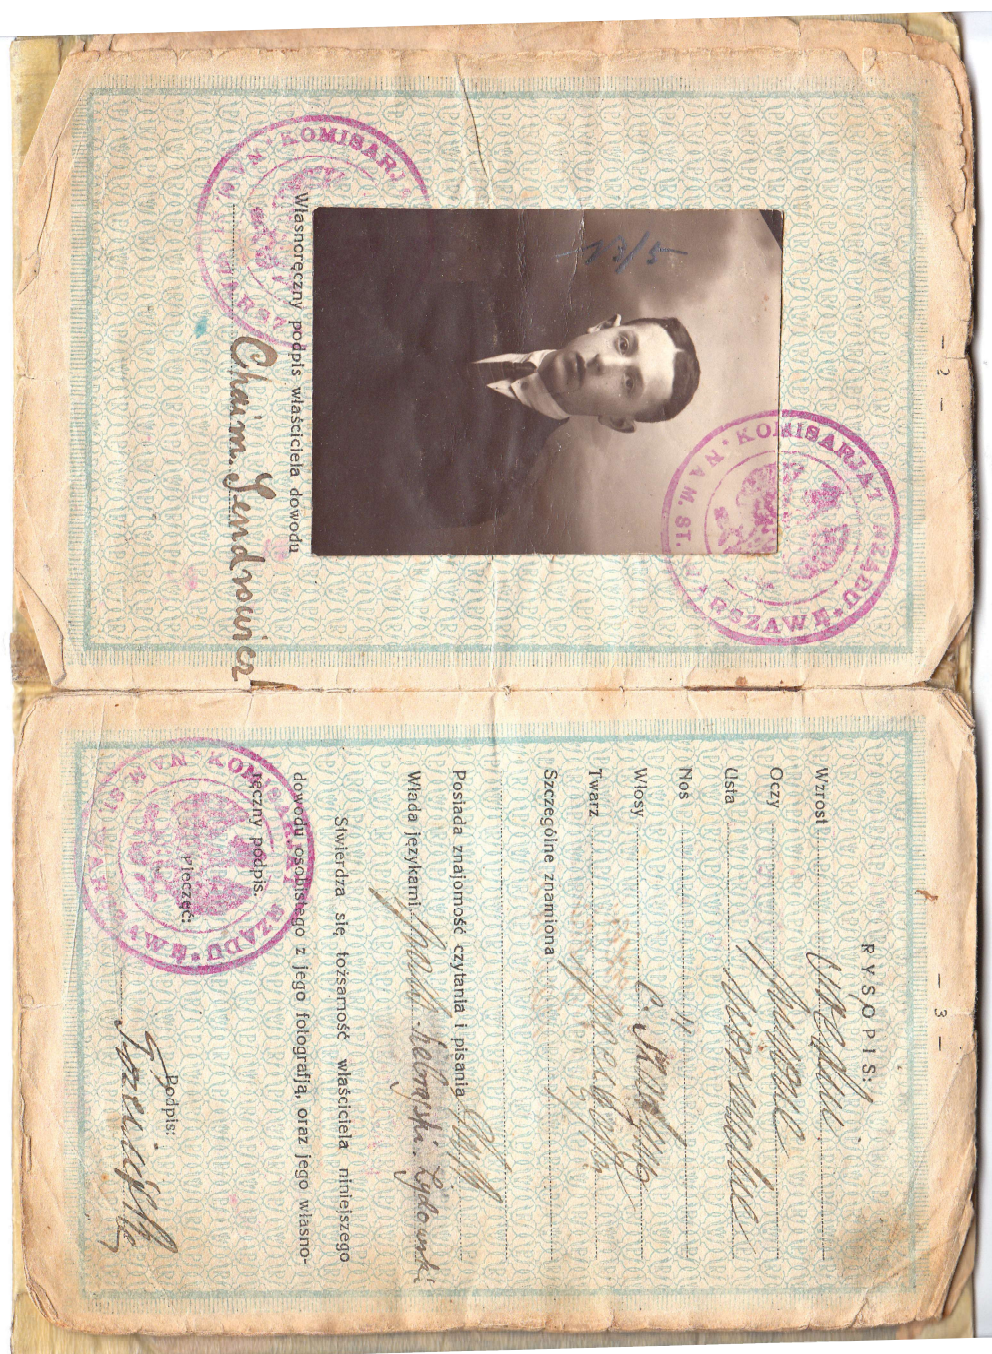 - 2 -
13/5
KOMISARJAT RZĄDU NA M. ST. WARSZAWĘ
KOMISARJ NA M WARSZ
Własnoręczny podpis właściciela dowodu
Chaim. Sendrowicz
- 3 -
RYSOPIS:
Wzrost średni
Oczy piwne
Usta normalne
Nos "
Włosy c. szatyn
Twarz
Szczególne znamiona
Posiada znajomość czytania i pisania
Włada językami hebrajski. Żydowski
Stwierdza się tożsamość właściciela niniejszego
dowodu osobistego z jego fotografją, oraz jego własno-
ręczny podpis.
Pieczęć:
Podpis:
KOMISARJAT RZĄDU NA M ST WARSZAWĘ